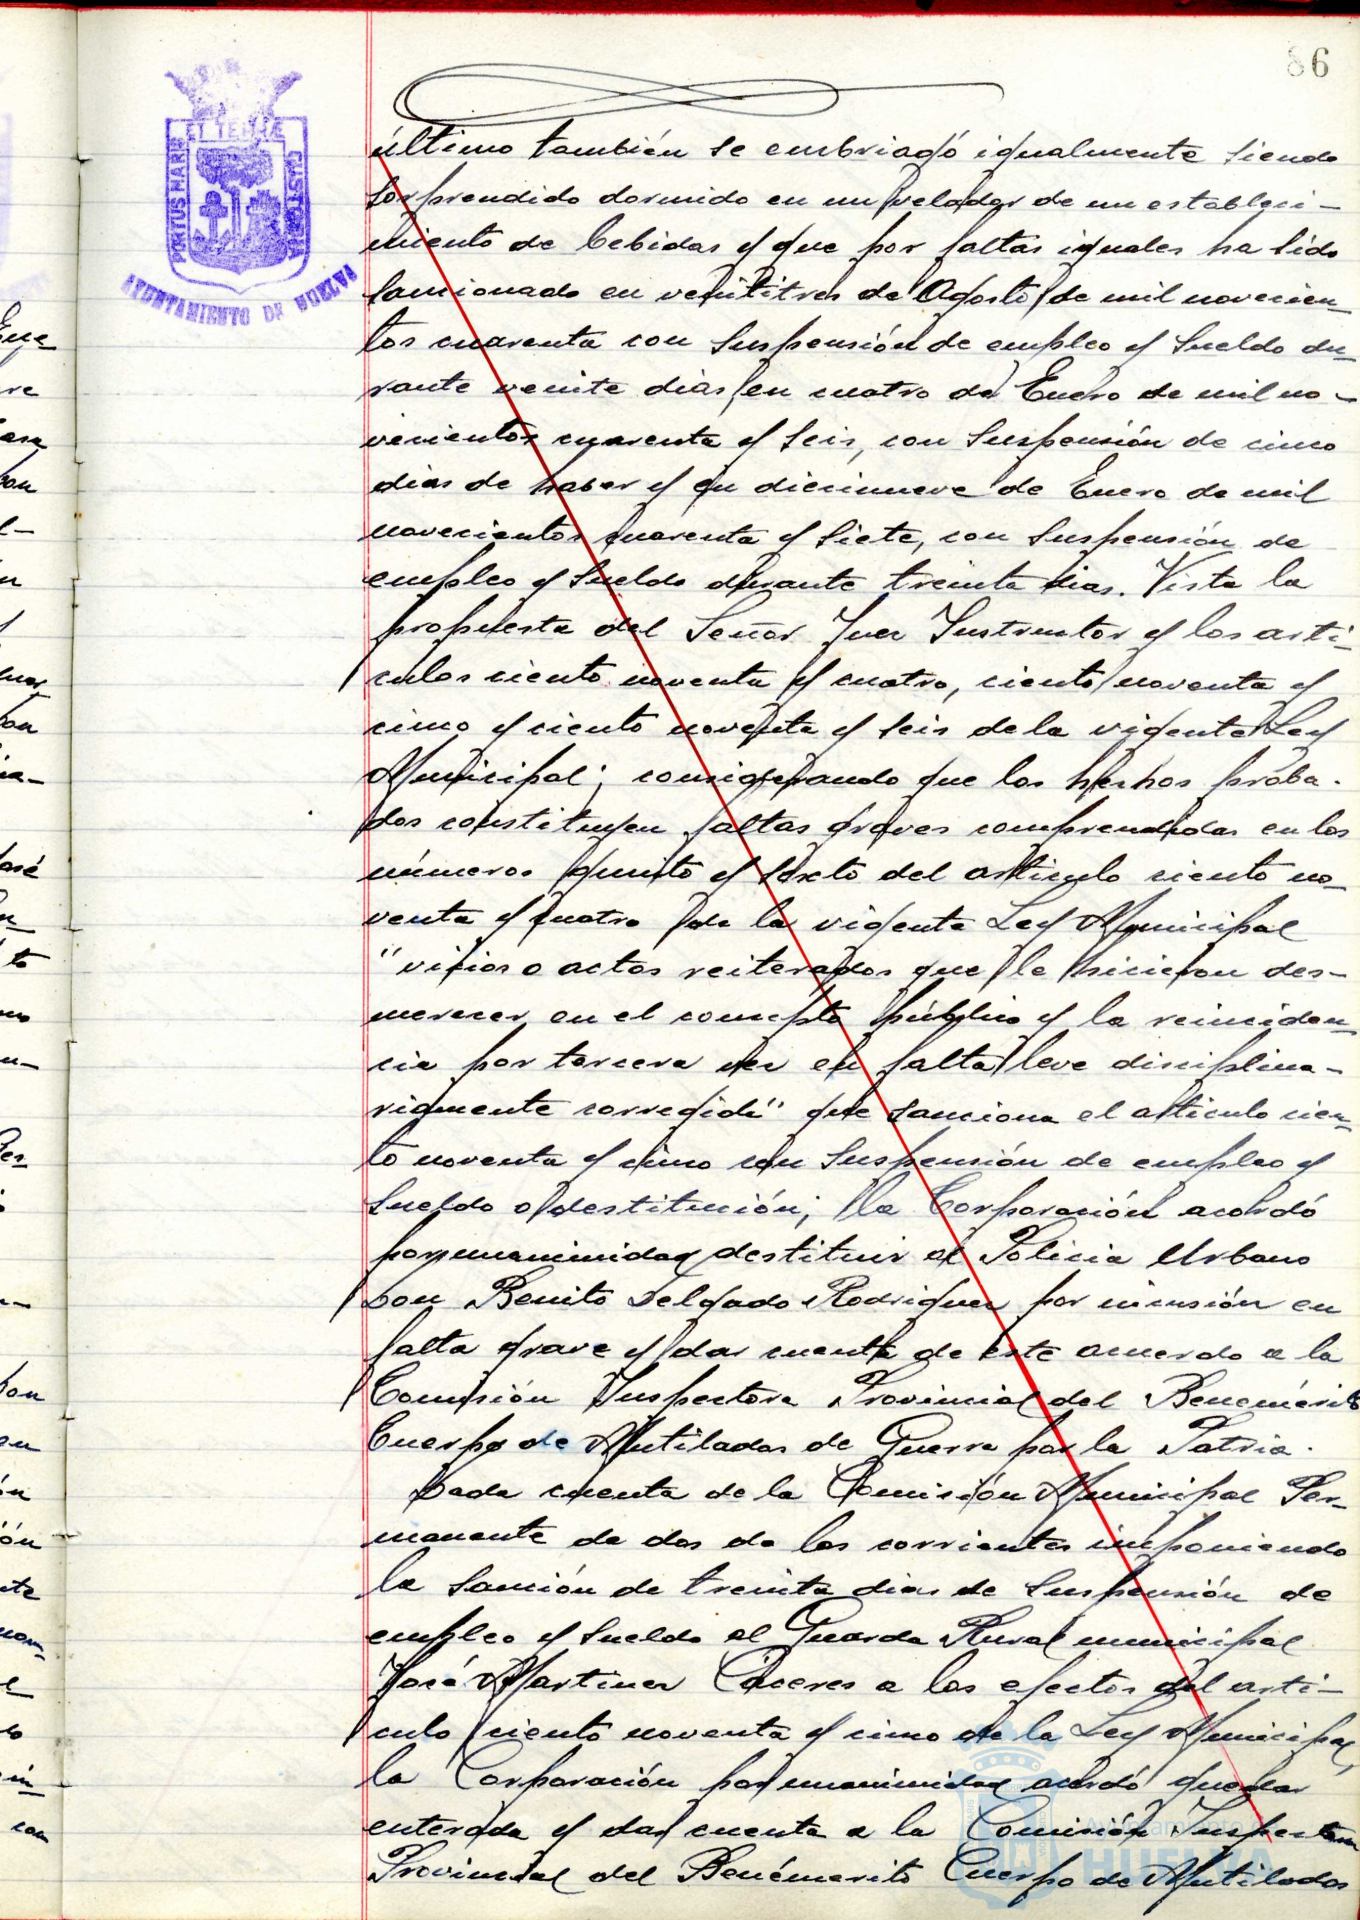 86
PORTUS MARIS ET TERRÆ CUSTODIA
AYUNTAMIENTO DE HUELVA
último también se embriagó igualmente siendo
sorprendido dormido en un velador de un estableci-
miento de bebidas y que por faltas iguales ha sido
sancionado en veintitres de Agosto de mil novecien-
tos cuarenta con suspensión de empleo y sueldo du-
rante veinte dias, en cuatro de Enero de mil no-
vecientos cuarenta y seis, con suspensión de cinco
dias de haber y en diecinueve de Enero de mil
novecientos cuarenta y siete, con suspensión de
empleo y sueldo durante treinta dias. Vista la
propuesta del Señor Juez Instructor y los artí-
culos ciento noventa y cuatro, ciento noventa y
cinco y ciento noventa y seis de la vigente Ley
Municipal; considerando que los hechos proba-
dos constituyen faltas graves comprendidas en los
números quinto y sexto del articulo ciento no-
venta y cuatro de la vigente Ley Municipal
"vicios o actos reiterados que le hicieron des-
merecer en el concepto público y la reinciden-
cia por tercera vez en falta leve disciplina-
riamente corregida" que sanciona el articulo cien-
to noventa y cinco con suspensión de empleo y
sueldo o destitución; la Corporación acordó
por unanimidad destituir al Policia Urbano
Don Benito Delgado Rodriguez por incusión en
falta grave y dar cuenta de este acuerdo a la
Comisión Inspectora Provincial del Benemérito
Cuerpo de Mutilados de Guerra por la Patria.
Dada cuenta de la Comisión Municipal Per-
manente de dos de los corrientes imponiendo
la sanción de treinta dias de suspensión de
empleo y sueldo al Guarda Rural municipal
José Martinez Caceres a los efectos del artí-
culo ciento noventa y cinco de la Ley Municipal,
la Corporación por unanimidad acordó quedar
enterada y dar cuenta a la Comisión Inspectora
Provincial del Benémerito Cuerpo de Mutilados
Ayuntamiento de
HUELVA